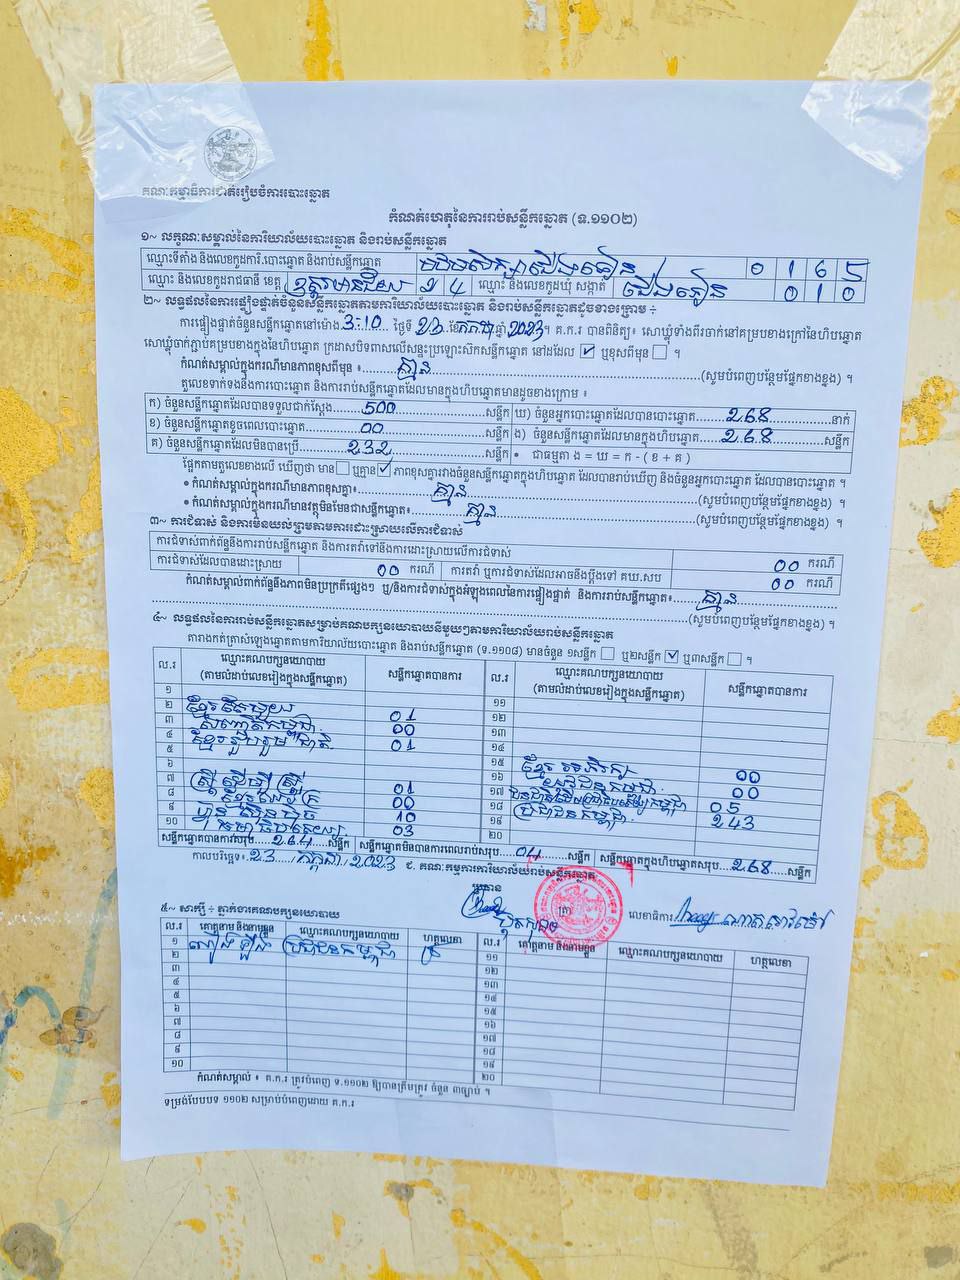 គណៈកម្មាធិការជាតិរៀបចំការបោះឆ្នោត
កំណត់ហេតុនៃការរាប់សន្លឹកឆ្នោត (ទ.១១០២)
១~ លក្ខណៈសម្គាល់នៃការិយាល័យបោះឆ្នោត និងរាប់សន្លឹកឆ្នោត
ឈ្មោះទីតាំង និងលេខកូដការិ.បោះឆ្នោត និងរាប់សន្លឹកឆ្នោត 0 1 6 5
ឈ្មោះ និងលេខកូដរាជធានី ខេត្ត ឧត្តរមានជ័យ 2 4 ឈ្មោះ និងលេខកូដឃុំ សង្កាត់ 0 1 0
២~ លទ្ធផលនៃការផ្ទៀងផ្ទាត់ចំនួនសន្លឹកឆ្នោតតាមការិយាល័យបោះឆ្នោត និងរាប់សន្លឹកឆ្នោតដូចខាងក្រោម ÷
ការផ្ទៀងផ្ទាត់ចំនួនសន្លឹកឆ្នោតនៅម៉ោង 3:10 ថ្ងៃទី 23 ខែ កក្កដា ឆ្នាំ 2023 ។ គ.ក.រ បានពិនិត្យ៖ សោឃ្លុំទាំងពីរចាក់នៅគម្របខាងក្រៅនៃហិបឆ្នោត
សោឃ្លុំចាក់ភ្ជាប់គម្របខាងក្នុងនៃហិបឆ្នោត ក្រដាសបិទពាសលើសន្ទះប្រឡោះសិកសន្លឹកឆ្នោត នៅដដែល ☑ ឬខុសពីមុន ☐ ។
កំណត់សម្គាល់ក្នុងករណីមានភាពខុសពីមុន ៖ គ្មាន (សូមបំពេញបន្ថែមផ្នែកខាងខ្នង) ។
តួលេខទាក់ទងនឹងការបោះឆ្នោត និងការរាប់សន្លឹកឆ្នោតដែលមានក្នុងហិបឆ្នោតមានដូចខាងក្រោម ៖
ក) ចំនួនសន្លឹកឆ្នោតដែលបានទទួលជាក់ស្តែង 500 សន្លឹក ឃ) ចំនួនអ្នកបោះឆ្នោតដែលបានបោះឆ្នោត 268 នាក់
ខ) ចំនួនសន្លឹកឆ្នោតខូចពេលបោះឆ្នោត 00 សន្លឹក ង) ចំនួនសន្លឹកឆ្នោតដែលមានក្នុងហិបឆ្នោត 268 សន្លឹក
គ) ចំនួនសន្លឹកឆ្នោតដែលមិនបានប្រើ 232 សន្លឹក • ជាធម្មតា ង = ឃ = ក - ( ខ + គ )
ផ្អែកតាមតួលេខខាងលើ ឃើញថា មាន ☐ ឬគ្មាន ☑ ភាពខុសគ្នារវាងចំនួនសន្លឹកឆ្នោតក្នុងហិបឆ្នោត ដែលបានរាប់ឃើញ និងចំនួនអ្នកបោះឆ្នោត ដែលបានបោះឆ្នោត ។
• កំណត់សម្គាល់ក្នុងករណីមានភាពខុសគ្នា៖ គ្មាន (សូមបំពេញបន្ថែមផ្នែកខាងខ្នង) ។
• កំណត់សម្គាល់ក្នុងករណីមានវត្ថុមិនមែនជាសន្លឹកឆ្នោត៖ គ្មាន (សូមបំពេញបន្ថែមផ្នែកខាងខ្នង) ។
៣~ ការជំទាស់ និងការមិនយល់ព្រមតាមការដោះស្រាយលើការជំទាស់
ការជំទាស់ពាក់ព័ន្ធនឹងការរាប់សន្លឹកឆ្នោត និងការតវ៉ាទៅនឹងការដោះស្រាយលើការជំទាស់ 00 ករណី
ការជំទាស់ដែលបានដោះស្រាយ 00 ករណី ការតវ៉ា ឬការជំទាស់ដែលអាចនឹងប្តឹងទៅ គឃ.សប 00 ករណី
កំណត់សម្គាល់ពាក់ព័ន្ធនឹងភាពមិនប្រក្រតីផ្សេងៗ ឬ/និងការជំទាស់ក្នុងអំឡុងពេលនៃការផ្ទៀងផ្ទាត់ និងការរាប់សន្លឹកឆ្នោត៖ គ្មាន
(សូមបំពេញបន្ថែមផ្នែកខាងខ្នង) ។
៤~ លទ្ធផលនៃការរាប់សន្លឹកឆ្នោតសម្រាប់គណបក្សនយោបាយនីមួយៗតាមការិយាល័យរាប់សន្លឹកឆ្នោត
តារាងកត់ត្រាសំឡេងឆ្នោតតាមការិយាល័យបោះឆ្នោត និងរាប់សន្លឹកឆ្នោត (ទ.១១០៨) មានចំនួន ១សន្លឹក ☐ ឬ២សន្លឹក ☑ ឬ៣សន្លឹក ☐ ។
ល.រ ឈ្មោះគណបក្សនយោបាយ (តាមលំដាប់លេខរៀងក្នុងសន្លឹកឆ្នោត) សន្លឹកឆ្នោតបានការ ល.រ ឈ្មោះគណបក្សនយោបាយ (តាមលំដាប់លេខរៀងក្នុងសន្លឹកឆ្នោត) សន្លឹកឆ្នោតបានការ
១ ១១
២ ខ្មែរតែមួយ 01 ១២
៣ 00 ១៣
៤ ខ្មែររួបរួមជាតិ 01 ១៤
៥ ១៥ 00
៦ ១៦ 00
៧ ស្ត្រីដើម្បីស្ត្រី 01 ១៧ 05
៨ 00 ១៨ ប្រជាជនកម្ពុជា 243
៩ ហ្វ៊ុនស៊ិនប៉ិច 10 ១៩
១០ 03 ២០
សន្លឹកឆ្នោតបានការសរុប 264 សន្លឹក សន្លឹកឆ្នោតមិនបានការពេលរាប់សរុប 04 សន្លឹក សន្លឹកឆ្នោតក្នុងហិបឆ្នោតសរុប 268 សន្លឹក
កាលបរិច្ឆេទ៖ 23 កក្កដា 2023 ជ. គណៈកម្មការការិយាល័យរាប់សន្លឹកឆ្នោត
ប្រធាន
ត្រា
លេខាធិការ
៥~ សាក្សី ÷ ភ្នាក់ងារគណបក្សនយោបាយ
ល.រ គោត្តនាម និងនាមខ្លួន ឈ្មោះគណបក្សនយោបាយ ហត្ថលេខា ល.រ គោត្តនាម និងនាមខ្លួន ឈ្មោះគណបក្សនយោបាយ ហត្ថលេខា
១ ប្រជាជនកម្ពុជា ១១
២ ១២
៣ ១៣
៤ ១៤
៥ ១៥
៦ ១៦
៧ ១៧
៨ ១៨
៩ ១៩
១០ ២០
កំណត់សម្គាល់ ៖ គ.ក.រ ត្រូវបំពេញ ទ.១១០២ ឱ្យបានត្រឹមត្រូវ ចំនួន ៣ច្បាប់ ។
ទម្រង់បែបបទ ១១០២ សម្រាប់បំពេញដោយ គ.ក.រ